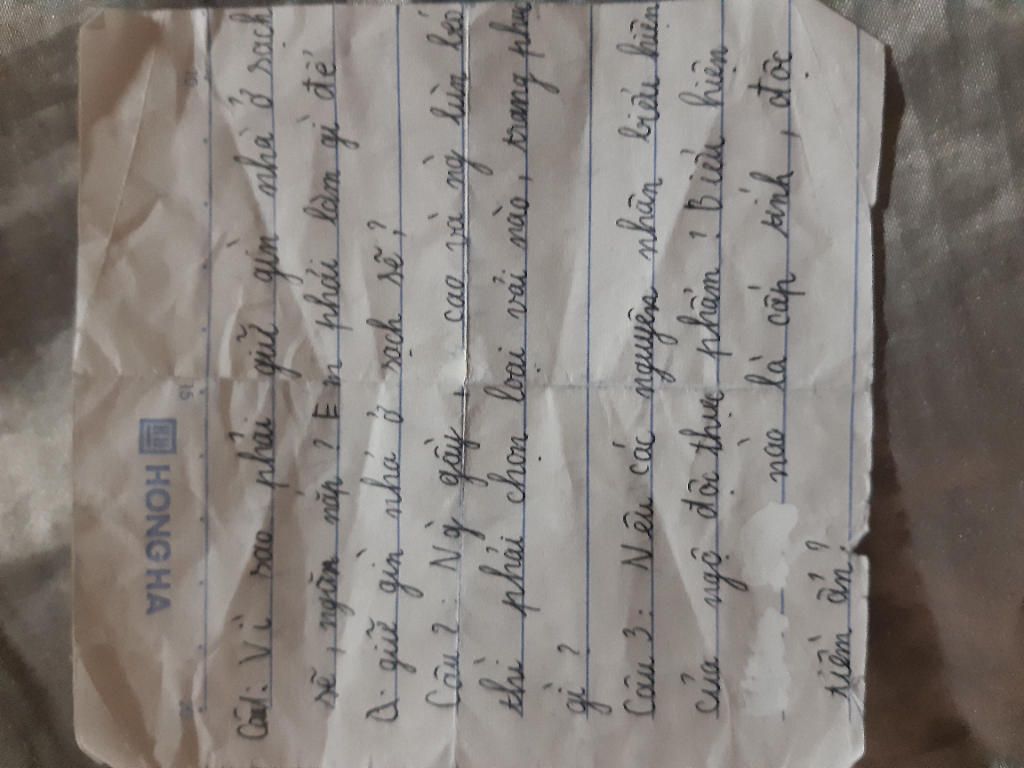 HONG HA
20 15 10
Câu1: Vì sao phải giữ gìn nhà ở sạch
sẽ, ngăn nắp? Em phải làm gì để
giữ gìn nhà ở sạch sẽ?
Câu 2: Ng gầy, cao và ng lùn béo
thì phải chọn loại vải nào, trang phục
gì?
Câu 3: Nêu các nguyên nhân biểu hiện
của ngộ độc thực phẩm? Biểu hiện
nào là cấp sinh, độc
tiềm ẩn?